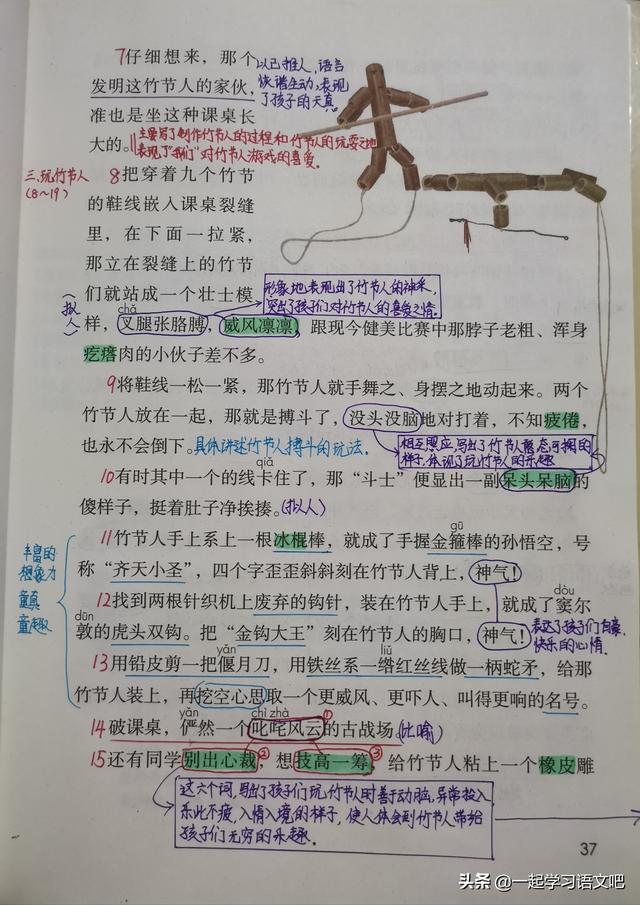 7仔细想来，那个
发明这竹节人的家伙，
准也是坐这种课桌长
大的。
以己推人，语言
诙谐生动，表现
了孩子的天真
主要写了制作竹节人的过程和竹节人的玩耍之地
表现了“我们”对竹节人游戏的喜爱。
三.玩竹节人
(8～19)
8把穿着九个竹节
的鞋线嵌入课桌裂缝
里，在下面一拉紧，
那立在裂缝上的竹节
们就站成一个壮士模
形象地表现出了竹节人的神采，
突出了孩子们对竹节人的喜爱之情。
(拟人)
chǎ
样，叉腿张胳膊，威风凛凛，跟现今健美比赛中那脖子老粗、浑身
疙瘩肉的小伙子差不多。
9将鞋线一松一紧，那竹节人就手舞之、身摆之地动起来。两个
竹节人放在一起，那就是搏斗了，没头没脑地对打着，不知疲倦，
也永不会倒下。具体讲述竹节人搏斗的玩法。
相互照应，写出了竹节人憨态可掬的
样子，体现了玩竹节人的乐趣
qiǎ
10有时其中一个的线卡住了，那“斗士”便显出一副呆头呆脑的
傻样子，挺着肚子净挨揍。(拟人)
丰富的
想象力
童真
童趣
gū
11竹节人手上系上一根冰棍棒，就成了手握金箍棒的孙悟空，号
称“齐天小圣”，四个字歪歪斜斜刻在竹节人背上，神气！
dòu
12找到两根针织机上废弃的钩针，装在竹节人手上，就成了窦尔
dūn
敦的虎头双钩。把“金钩大王”刻在竹节人的胸口，神气！
表达了孩子们自豪、
快乐的心情。
yǎn liǔ
13用铅皮剪一把偃月刀，用铁丝系一绺红丝线做一柄蛇矛，给那
竹节人装上，再挖空心思取一个更威风、更吓人、叫得更响的名号。
yǎn chì zhà
14破课桌，俨然一个叱咤风云①的古战场(比喻)
15还有同学别出心裁②，想技高一筹③，给竹节人粘上一个橡皮雕
这六个词，写出了孩子们玩竹节人时善于动脑，异常投入
乐此不疲，入情入境的样子，使人体会到竹节人带给
孩子们无穷的乐趣。
37
头条 @一起学习语文吧